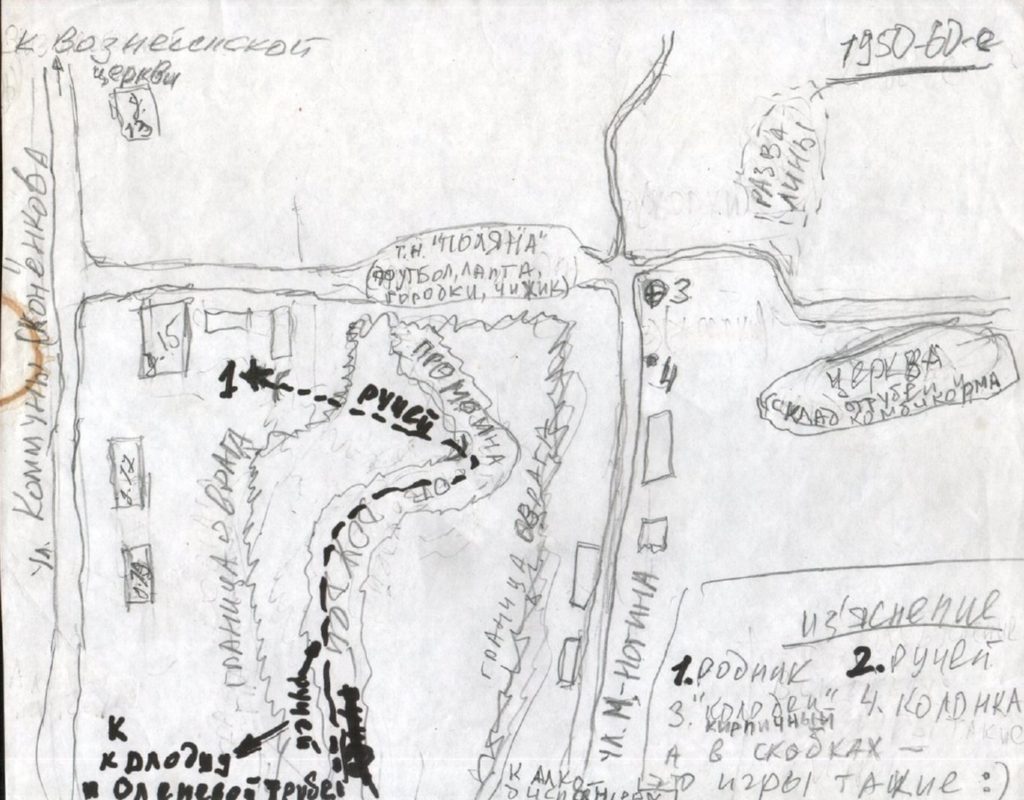 к Вознесенской
церкви
1950-60-е
д.
13
"РАЗВА
ЛИНЫ
ул. Коммуны
Т.Н. "ПОЛЯНА"
(ФУТБОЛ, ЛАПТА,
ГОРОДКИ, ЧИЖИК)
3
4
д.15
1
РУЧЕЙ
ПРОМОИНА
ЦЕРКВА
(СКЛАД ОТРУБЕЙ И
КОМБИКОРМА
ГРАНИЦА ОВРАГА
ГРАНИЦА ОВРАГА
ул. М-НОГИНА
РУЧЕЙ
К
КОЛОДЦУ
И
ТРУБЕ
К АЛКО
из'яснение
1. РОДНИК 2. РУЧЕЙ
3. "КОЛОДЕЦ" 4. КОЛОНКА
КИРПИЧНЫЙ
А В СКОБКАХ —
ЭТО ИГРЫ ТАКИЕ :)